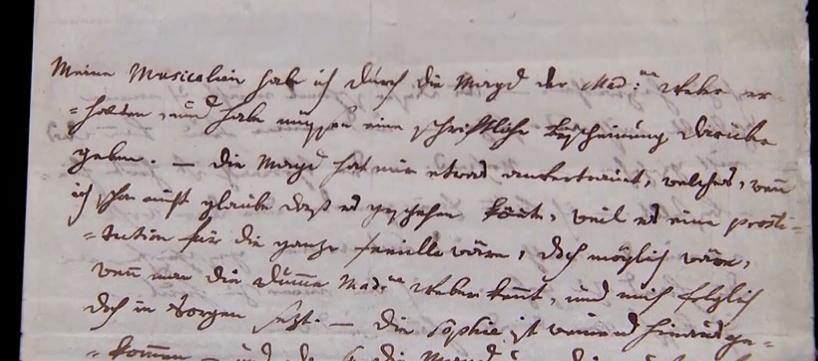 Meine Musicalien hab ich durch die Magd der Mad:me Weber er-
=halten, und habe müssen eine schriftliche Bescheinung darüber
geben. — die Magd hat mir etwas anvertrauet, welches, wenn
ich schon nicht glaube daß es geschehen könnte, weil es eine prosti=
=tution für die ganze familie wäre, doch möglich wäre,
wenn man die dumme Mad:me Weber kennt, und mich folglich
doch in Sorgen sezt. — die Sophie ist weinend hinausge=
=kommen — und da die Magd